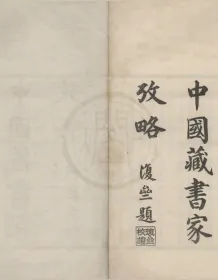 中國藏書家
攷略
復堪題